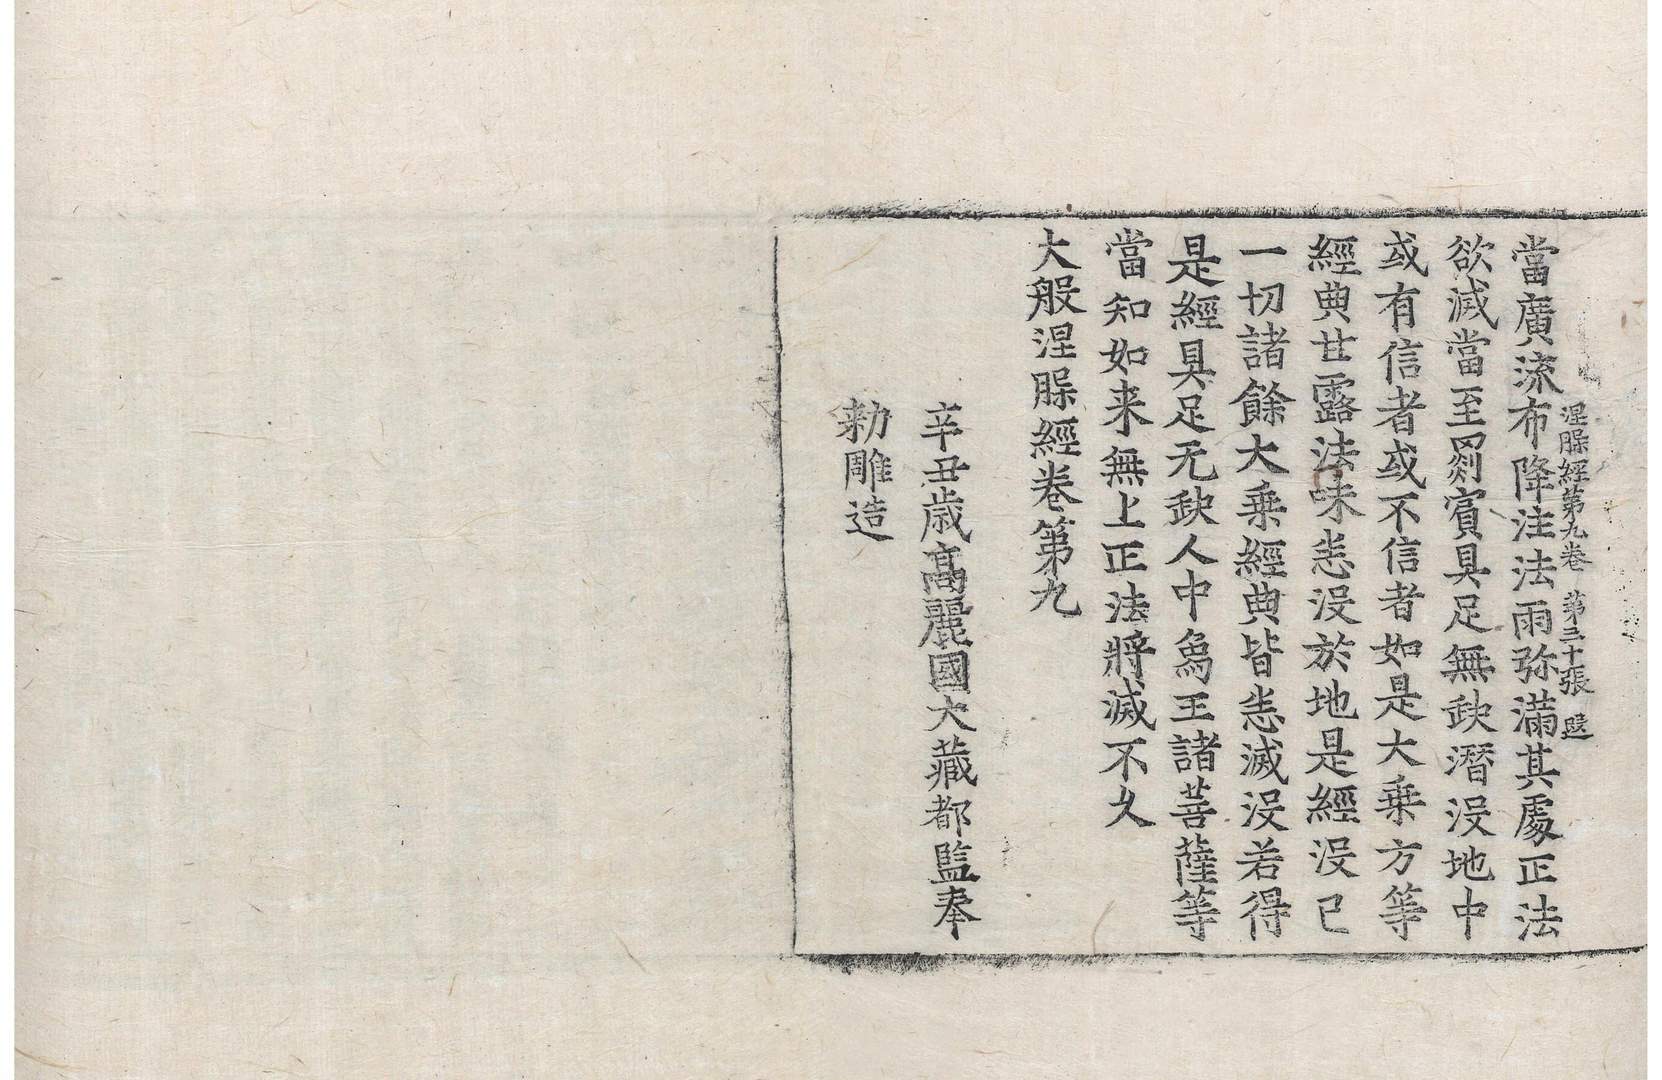 涅槃經第九卷 第三十張 遐
當廣流布降注法雨弥滿其處正法
欲滅當至罽賓具足無缺潛没地中
或有信者或不信者如是大乗方等
經典甘露法味悉没於地是經没已
一切諸餘大乗經典皆悉滅没若得
是經具足无缺人中象王諸菩薩等
當知如来無上正法將滅不久
大般涅槃經卷第九
辛丑歲高麗國大藏都監奉
勅雕造